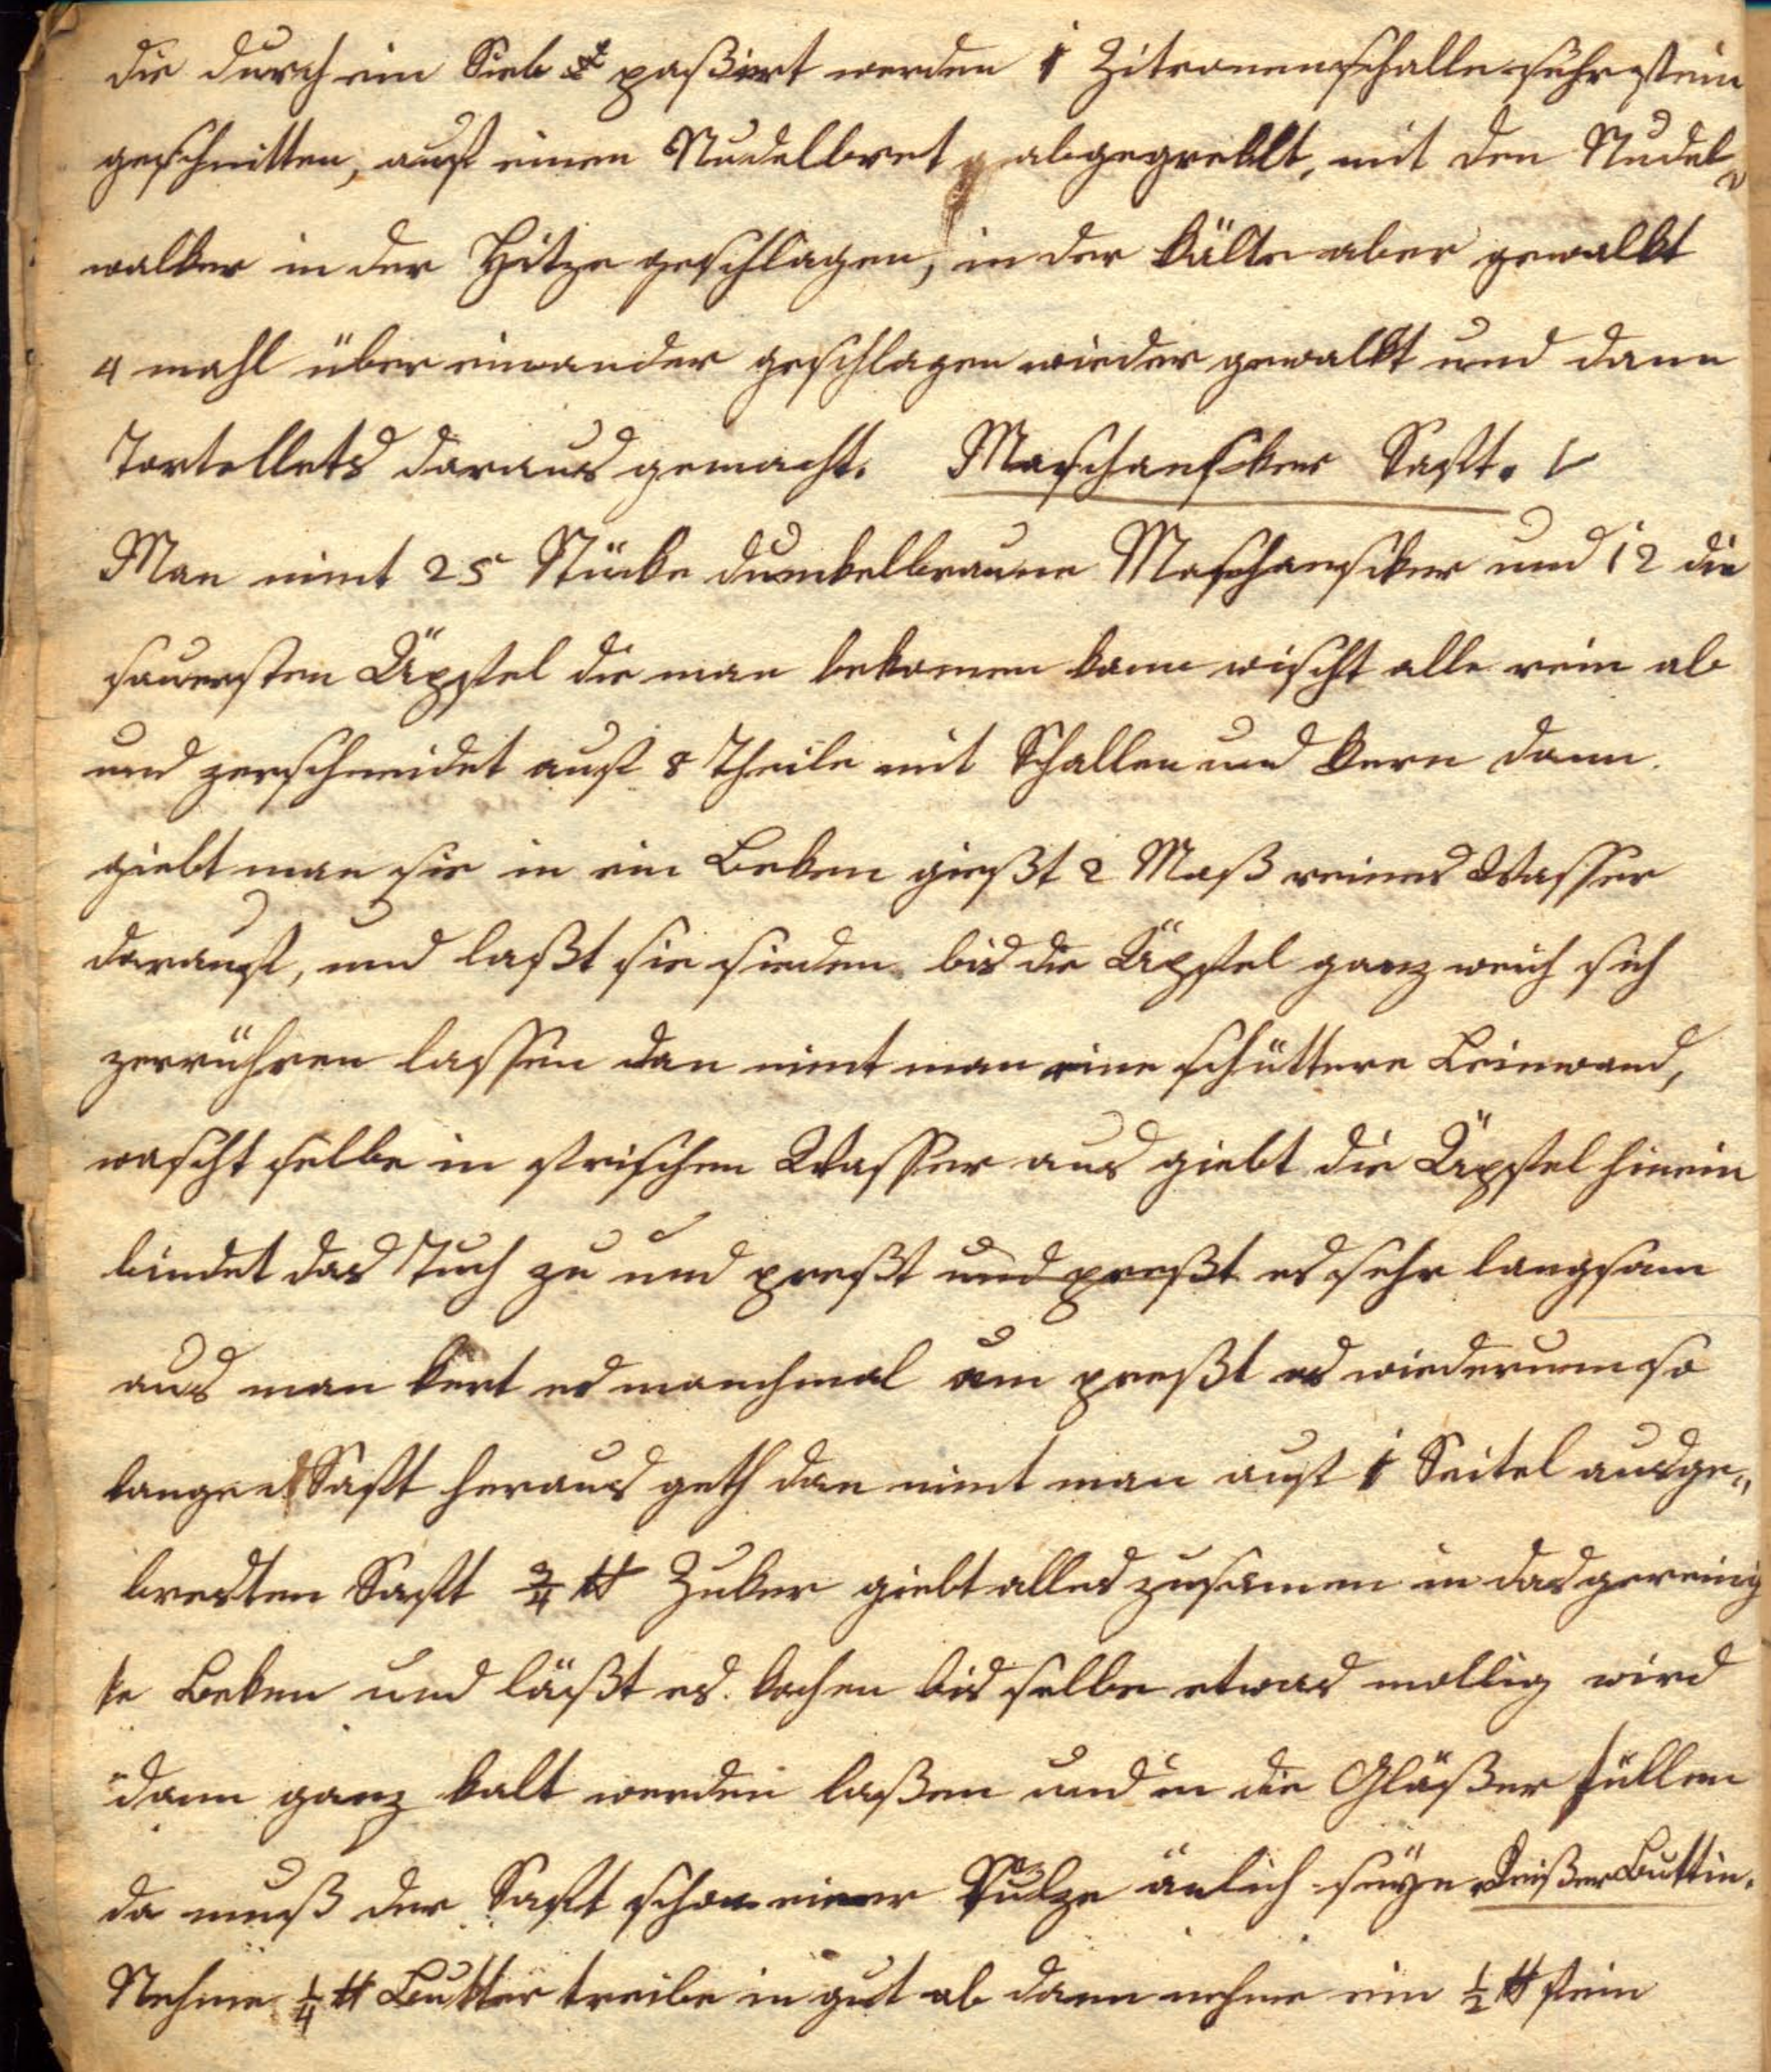 die durch ein Sieb paßirt werden 1 Zitronenschalle sehr fein
geschnitten, auf einen Nudelbret abgegreblt, mit den Nudel„
walker in der Hitze geschlagen, in der Kälte aber gewalkt
4 mahl über einander geschlagen wieder gewalkt und dann
Tortellets daraus gemacht. Maschansker Saft.
Man nimt 25 Stücke dunkelbraune Maschansker und 12 die
sauersten Äpfel die man bekomen kann wischt alle rein ab
und zerschneidet auf 8 Theile mit Schallen und Kern dann
giebt man sie in ein Beken gießt 2 Maß reines Wasser
darauf, und laßt sie sieden bis die Äpfel ganz weich sich
zerrühren lassen dan nimt man eine schüttere Leinwand,
wascht selbe in frischen Wasser aus giebt die Äpfel hinein
bindet das Tuch zu und preßt und preßt es sehr langsam
aus man kert es manchmal um preßt es wiederum so
lange Saft heraus geth dan nimt man auf 1 Seitel ausge„
bresten Saft 3/4 ℔ Zuker giebt alles zusamen in das gereinig
te Beken und läßt es kochen bis selbe etwas mollig wird
dann ganz kalt werden laßen und in die Gläßer füllen
da muß der Saft schon einer Sulze änlich seyn Buttin.
Nehme 1/4 ℔ Butter treibe in gut ab dann nehme ein 1/2 ℔ fein